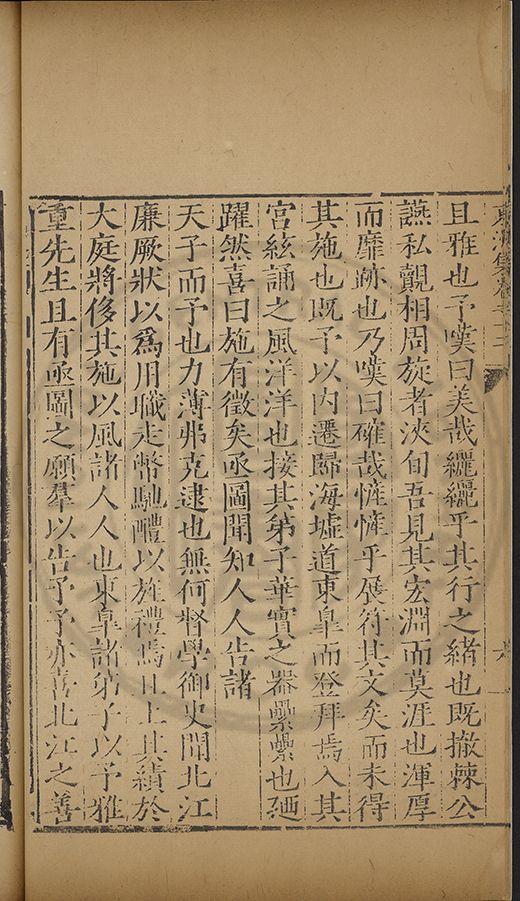 且雅也予嘆曰美哉纚纚乎其行之緒也既撤棘公
讌私覿相周旋者浹旬吾見其宏淵而莫涯也渾厚
而靡跡也乃嘆曰確哉慥慥乎展符其文矣而未得
其施也既予以内遷歸海墟道東皐而登拜焉入其
宮絃誦之風洋洋也接其弟子華實之器纍纍也廼
躍然喜曰施有徵矣亟圖聞知人人告諸
天子而予也力薄弗克逮也無何督學御史聞北江
廉厥狀以爲用職走幣馳醴以旌禮焉且上其績於
大庭將侈其施以風諸人人也東皐諸弟子以予雅
重先生且有亟圖之願羣以告予予亦喜北江之善